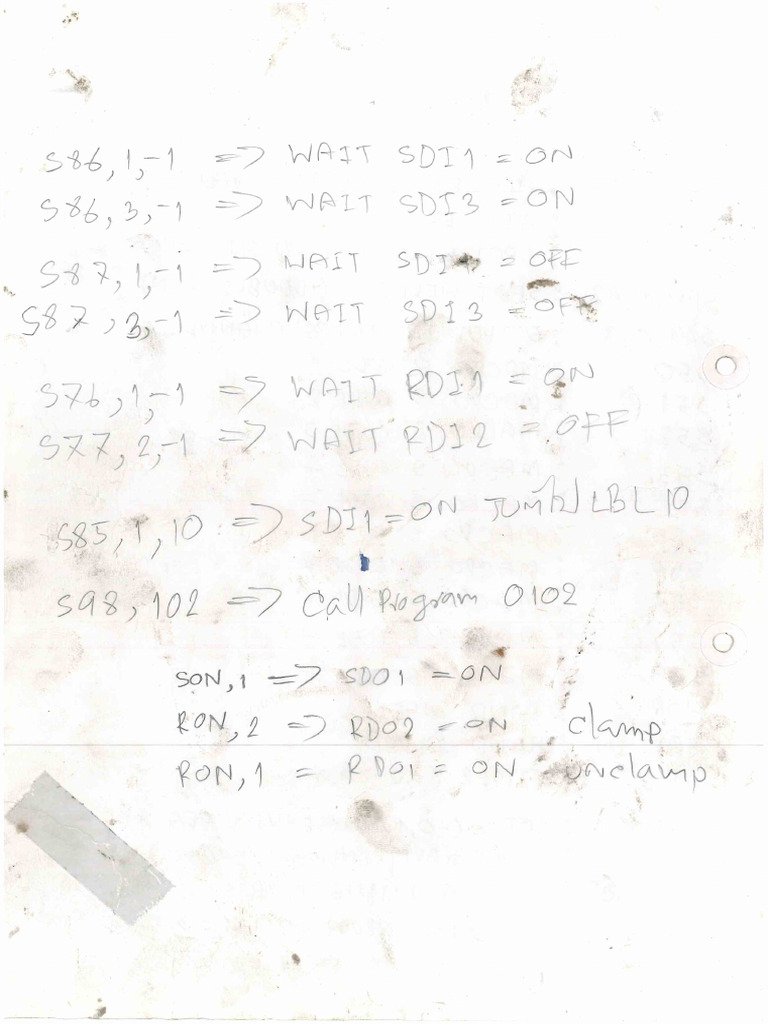 S86,1,-1 => WAIT SDI1 = ON
S86,3,-1 => WAIT SDI3 = ON
S87,1,-1 => WAIT SDI1 = OFF
S87,3,-1 => WAIT SDI3 = OFF
S76,1,-1 => WAIT RDI1 = ON
S77,2,-1 => WAIT RDI2 = OFF
S85,1,10 => SDI1=ON LBL10
S98,102 => Call Program 0102
SON,1 => SDO1 = ON
RON,2 => RDO2 = ON clamp
RON,1 = RDO1 = ON unclamp